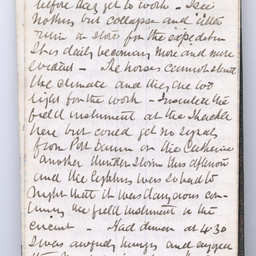 before they get to work - I see
nothing but collapse and utter
ruin in store for the expedition
It is daily becoming more and more
evident - The horses cannot stand
the climate and they are too
light for the work - Insulated the
field instrument at the Shackle
here but could get no signals
from Port Darwin or the Catherine
another thunder storm this afternoon
and the lightning was so bad to
night that it was dangerous con-
-necting the field instrument in the
circuit - Had dinner at 4.30
I was awfully hungry and enjoyed